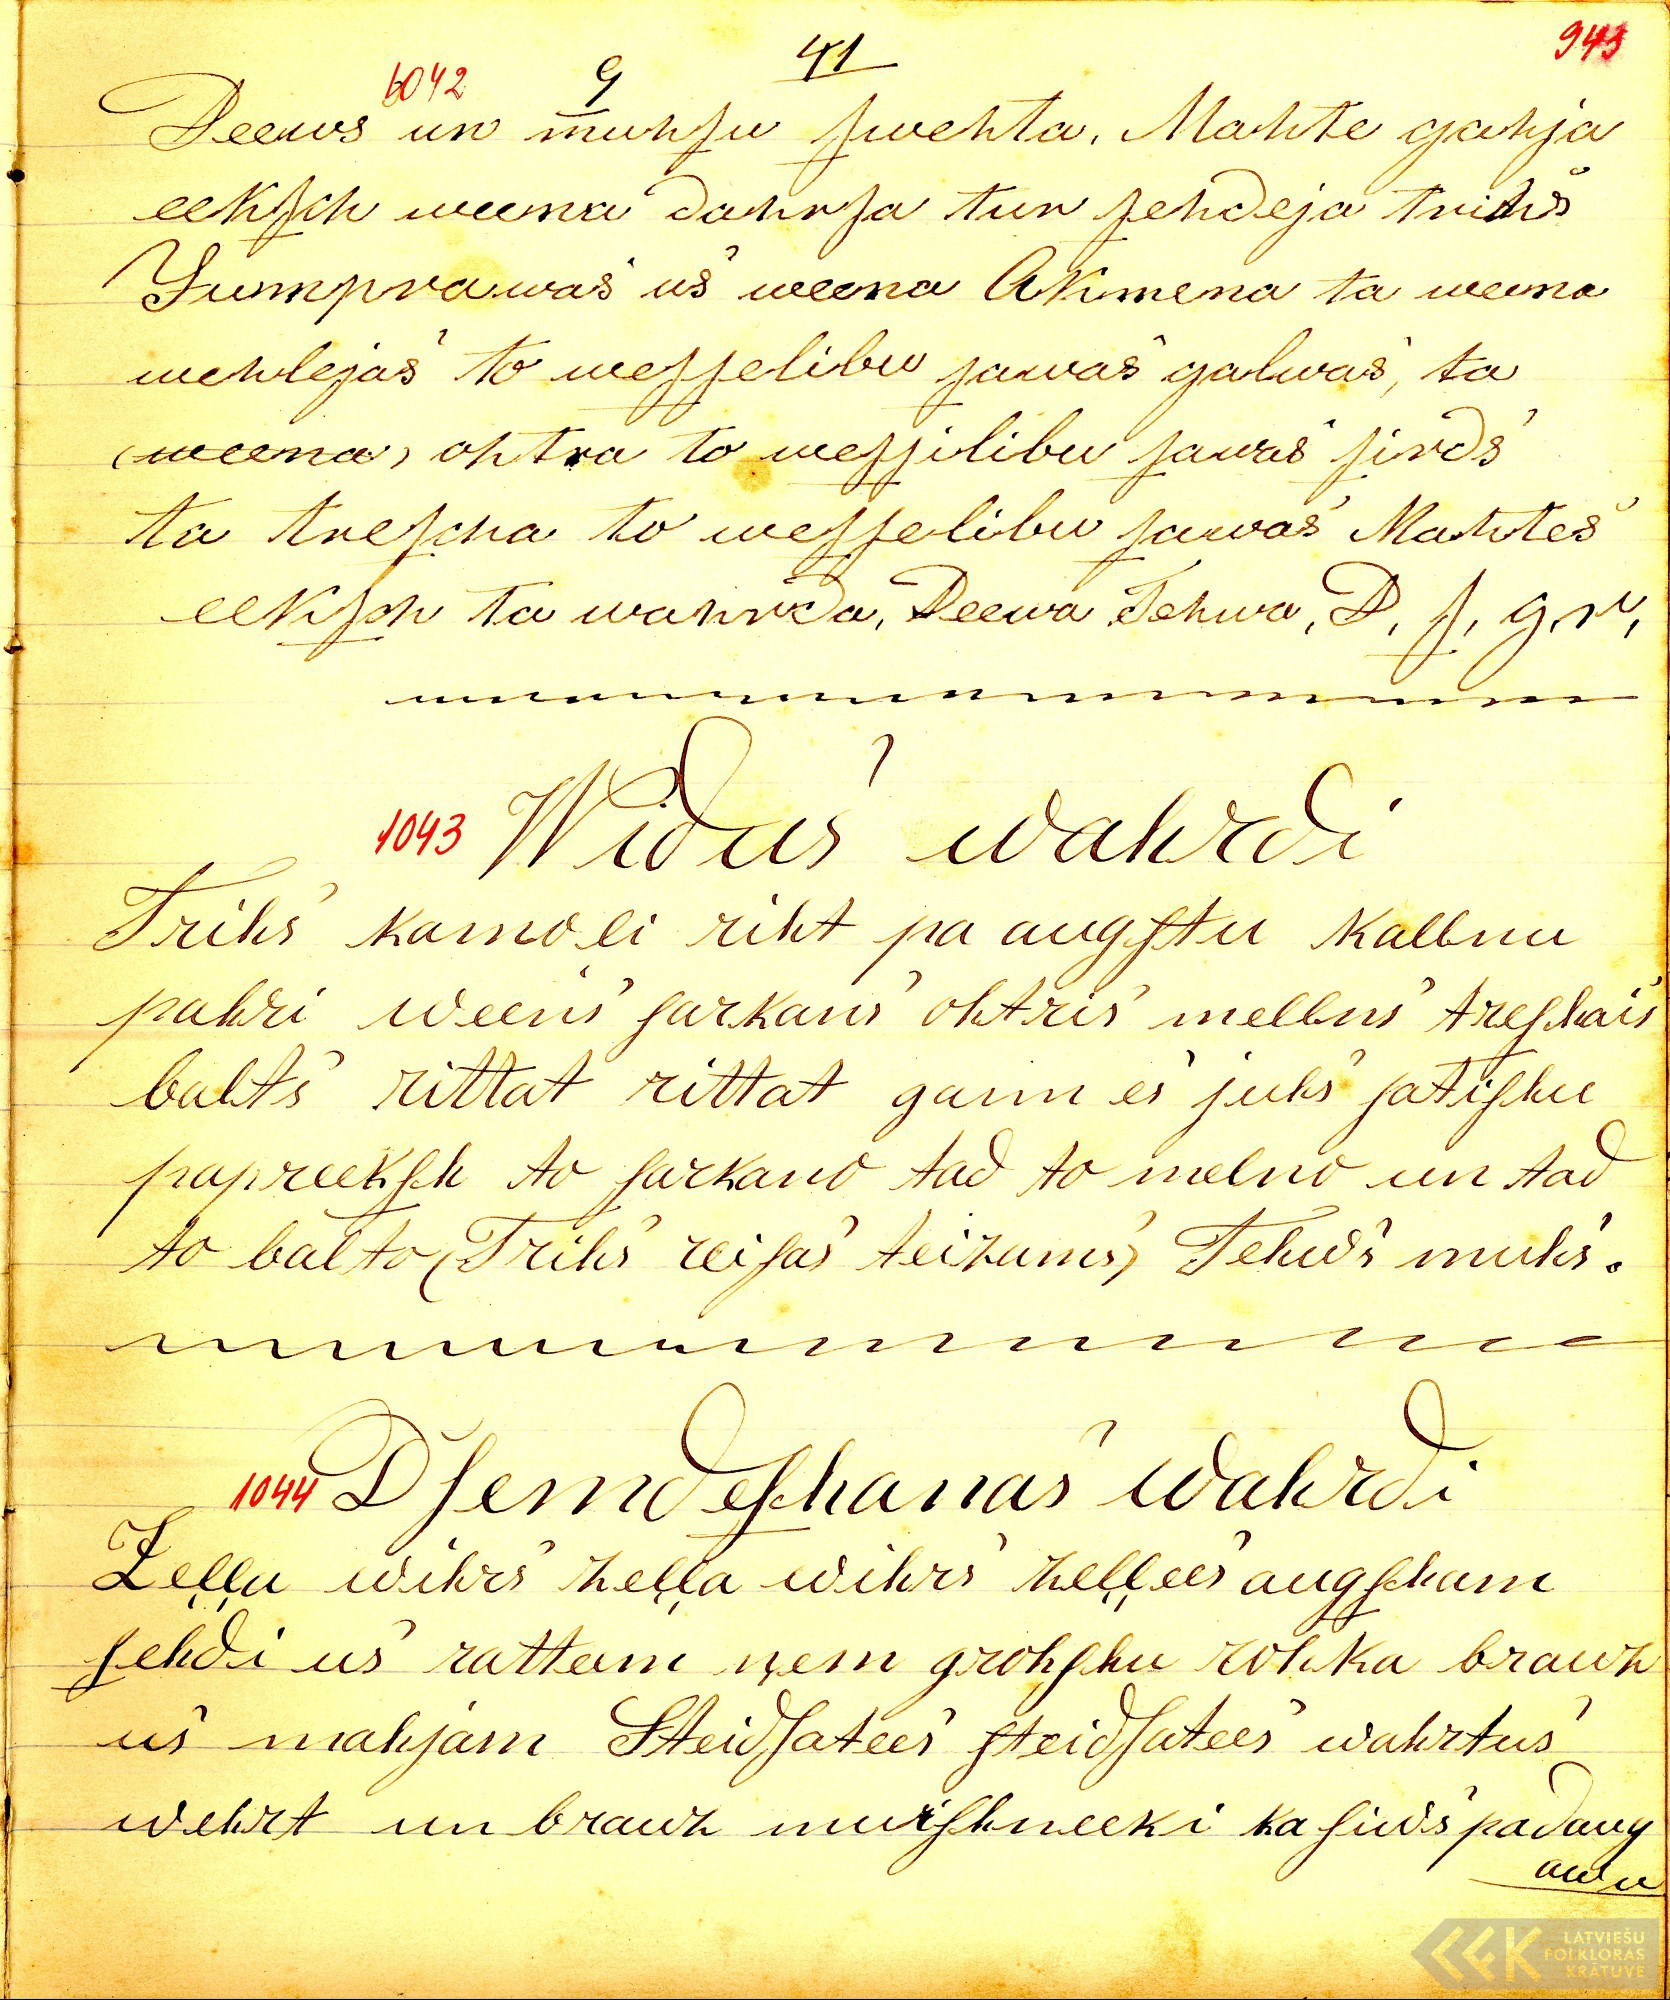 943
41
6042 9
Deews un muhſu ſwehta, Mahte gahja
eekſch weena dahrſa tur ſehdeja trihs
Jumprawas us weena Akmena ta weena
mehlejas to weſſelibu ſawas galwas, ta
(weena) ohtra to weſſilibu ſawas ſirds
ta treſcha to weſſelibu ſawas Mahtes
eekſch ta wahrda, Deewa Tehwa, D, ſ, g. r,
1043 Widus wahrdi
Trihs kamoli riht pa augſtu kallnu
pahri weens ſarkans ohtris mellns treſhais
balts rittat rittat gann es juhs ſatiſhu
papreekſh to ſarkano tad to melno un tad
to balto (Trihs reiſas teizams) Tehws muhs.
1044 Dſemdeſhanas wahrdi
Zeļļa wihrs zeļļa wihrs zeļļees augſham
ſehdi us ratteem ņem grohſhu rohka brauz
us mahjam Steidſatees ſteidſatees wahrtus
wehrt un brauz muiſhneeki ka ſiwis padaug
awu
LATVIEŠU
FOLKLORAS
KRĀTUVE